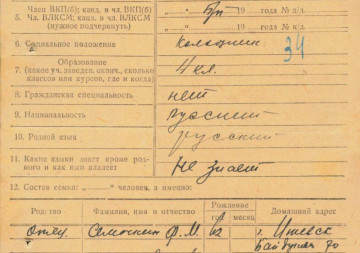 Член ВКП(б); канд. и чл. ВКП(б)
5. Чл. ВЛКСМ; канд. и чл. ВЛКСМ б/п „ “ 19 года № п/д.
(нужное подчеркнуть) „ “ 19 года № ч/б.
6. Социальное положение Колхозник 34
Образование
7. (какие уч. заведен. оконч., сколько 4 кл.
классов или курсов, где и когда)
8. Гражданская специальность нет
9. Национальность русский
10. Родной язык русский
11. Какие языки знает кроме родного и как ими владеет Не знает
12. Состав семьи: „ “ человек, а именно:
Родство Фамилия, имя и отчество Рождение год месяц Домашний адрес
Отец Ф. М. г. Ижевск
70